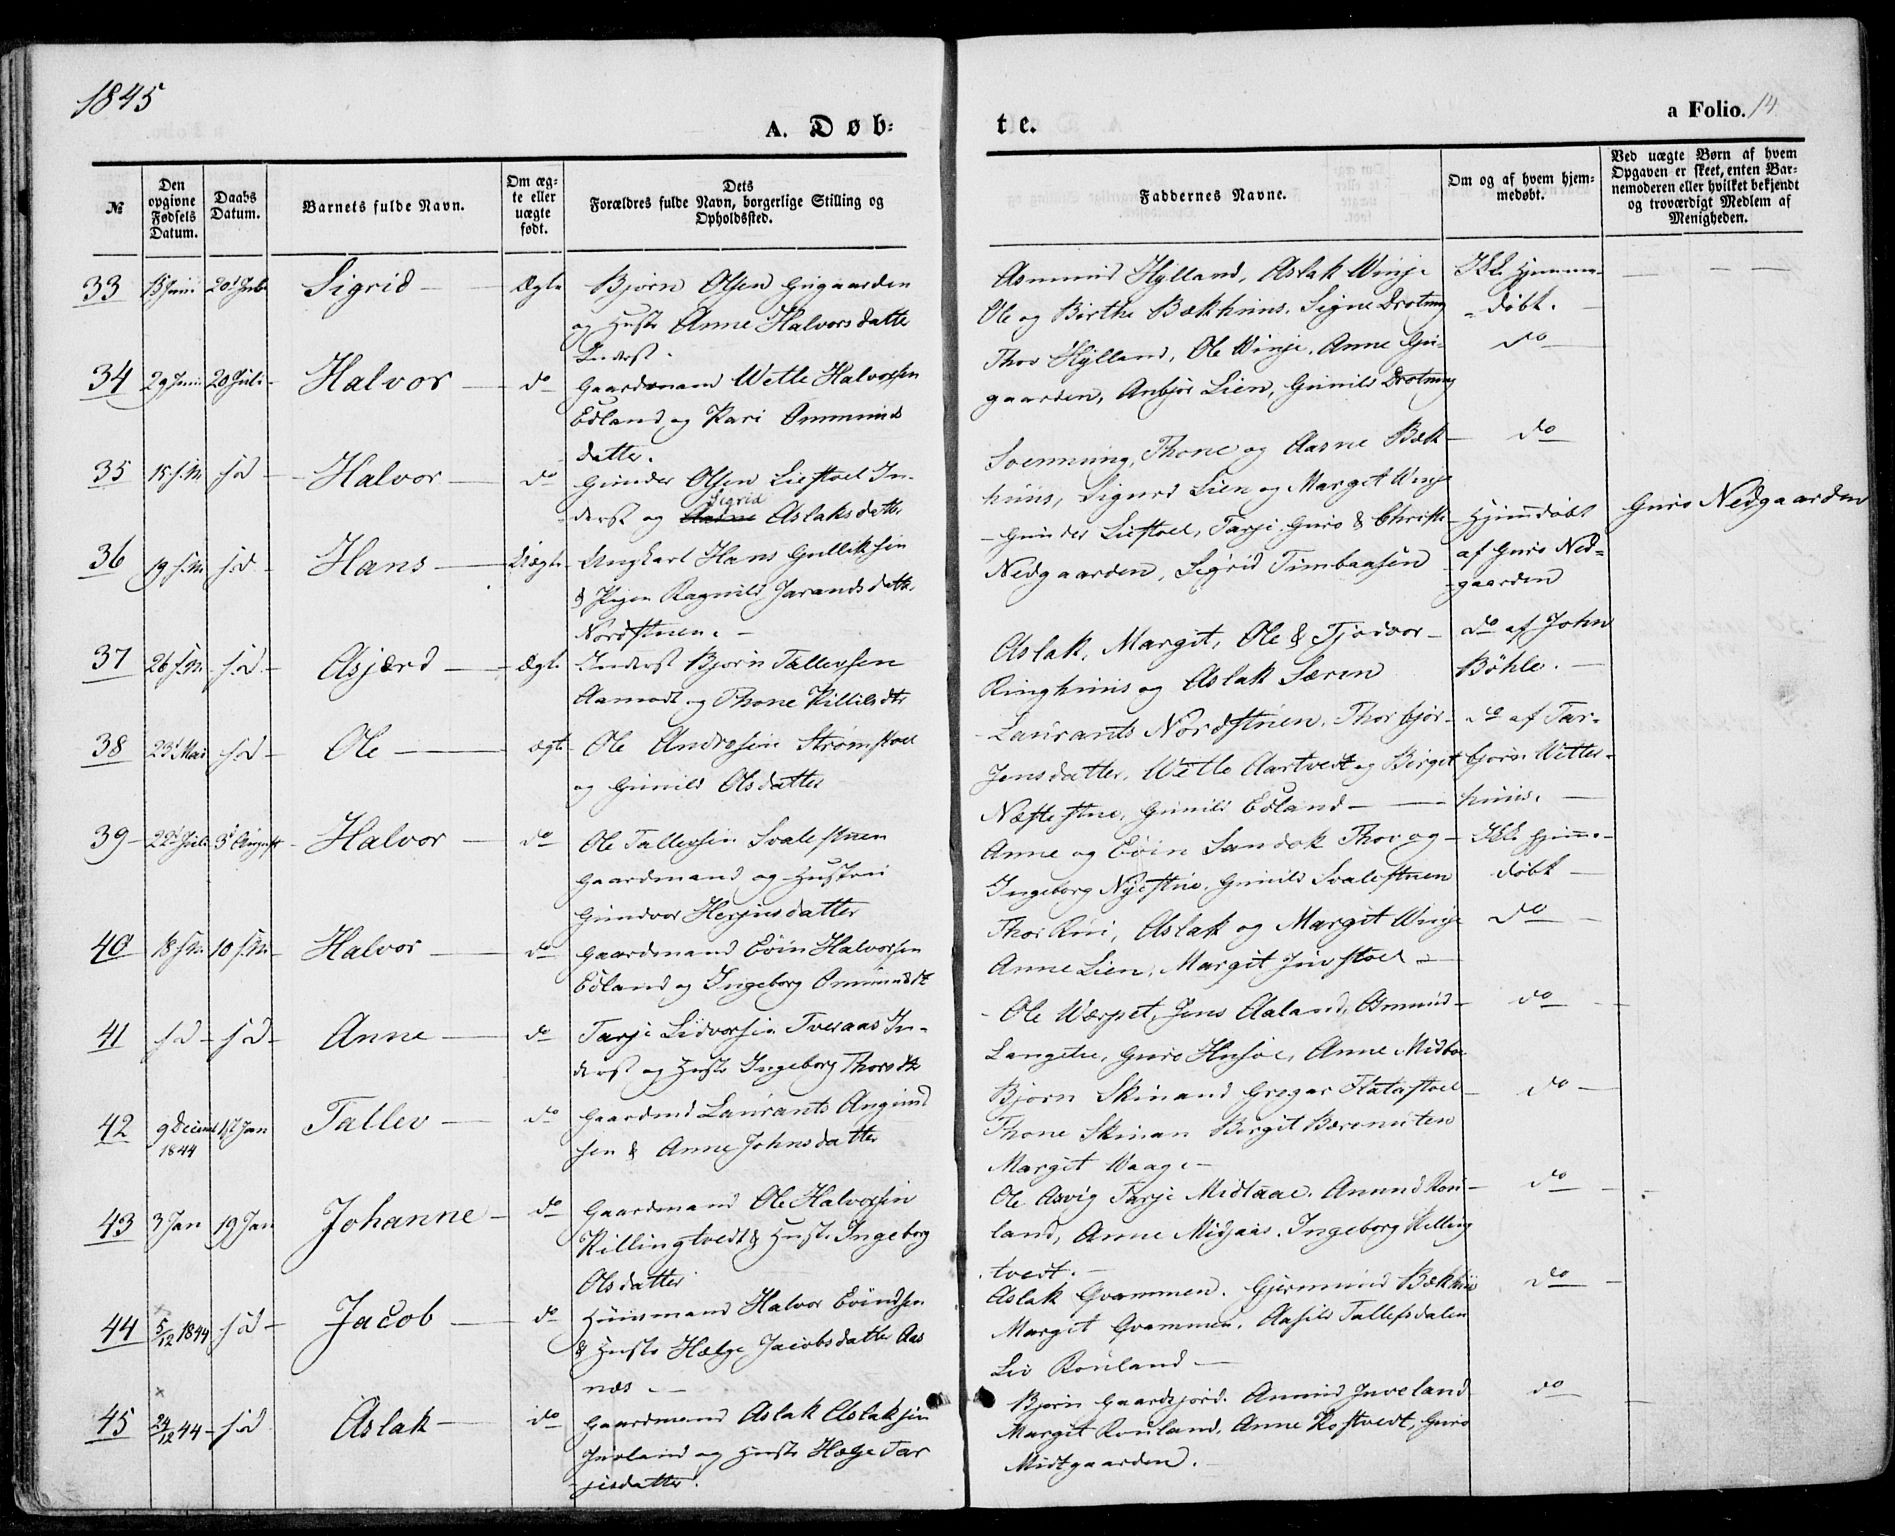 1845
A. Døb-
te.
a Folio. 14
№
Den opgivne Fødsels Datum.
Daabs Datum.
Barnets fulde Navn.
Om ægte eller uægte født.
Dets
Forældres fulde Navn, borgerlige Stilling og
Opholdssted.
Faddernes Navne.
Om og af hvem hjem-
medøbt.
Ved uægte Børn af hvem
Opgaven er skeet, enten Bar-
nemoderen eller hvilket bekjendt
og troværdigt Medlem af
Menigheden.
33 Juni 20d Juli Sigrid Ægte Bjørn Olsen
og Hustr Anne Halvorsdatter
Inderst.
Asmund Hylland, Aslak Winje
Ole og Birthe Bækhuus. Signe Drotning
Ikke hjemme-
døbt.
34 29 Juni 20 Juli Halvor do Gaardmand Wetle Halvorsen
Edland og Kari Ommunds
datter.
Thor Hylland, Ole Winje. Anne Gui-
gaarden, Anbjør Lien, Gunild Drotning
do
35 15 s.M. s.d Halvor do Gunder Olsen Liestoel In-
derst og Sigrid Aslaksdatter
Svenning, Thone og Aasne Bæk-
huus, Sigurd Lien og Margit Winje
do
36 19 s.M. s.d Hans Uægte Ungkarl Hans Gulliksen
& Pigen Ragnild Jarandsdatter
Nordstuen.
Gunder Liestoel, Tarje Guro &
Nedgaarden, Sigrid Timbaasen
Hjemdøbt
af Guro Ned-
gaarden
Guro Nedgaarden
37 26 s.M. s.d Asjærd Ægte Inderst Bjørn Tallevsen
Aamodt og Thone
Aslak, Margit, Ole & Tjodvor
Ringhuus og Aslak Særen
do af John
Bøhle.
38 23d Mai s.d Ole ægte Ole Andersen Strømstoel
og Gunild Olsdatter
Laurants Nordstuen. Thorbjør
Jensdatter, Wetle Aartvedt og Birgit
Næstestue, Gunild Edland
do af Tar-
bjørn Wetter-
huus.
39 22d Juli 3d August Halvor do Ole Tallevsen Svalestuen
Gaardmand og Hustru
Gundvor Herjusdatter
Anne og Eivin Sandok Thor og
Ingeborg Nystue. Gunild Svalestuen
Ikke hjemme-
døbt
40 18 s.M. 10 s.M. Halvor do Gaardmand Eivin Halvorsen
Edland og Ingeborg
Thor Rui, Aslak og Margit Winje
Anne Lien, Margit Juvstoel
do
41 s.d s.d Anne do Tarje Sidvorsen Tveraas In-
derst og Hustr Ingeborg Thorsdtr
Ole Wærpet, Jens Aaland, Osmund
Langelie, Guro Husoe, Anne Midboe
do
42 9 Decemb 1844 12 Jan Tallev do Gaardmd Laurants Anund
sen & Anne Johnsdatter
Bjørn Skinand Gregar Flatastoel
Thone Skinan Birgit Bæronuten
Margit Waage
do
43 3 Jan 19 Jan Johanne do Gaardmand Ole Halvorsen
Killingtvedt & Hustr Ingeborg
Olsdatter
Ole Asvig Tarje Midtaae. Anund Rou-
land, Anne Midjaas. Ingeborg Killing
tvedt.
do
44 5/12 1844 s.d Jacob do Huusmand Halvor Eivindsen
& Hustr Hælge Jacobsdatter Aas
næs
Aslak Gvammen. Gjermund Bækhus
Margit Gvammen. Aasild Tallefsdalen
Liv Rouland
do
45 24/12 44 s.d Aslak do Gaardmand Aslak Aslaksen
Juvland og Hustr Hælge Tar
jesdatter.
Bjørn Gaardsjord. Anund Juveland
Margit Rouland, Anne Kostvedt, Guro
Midtgaarden.
do